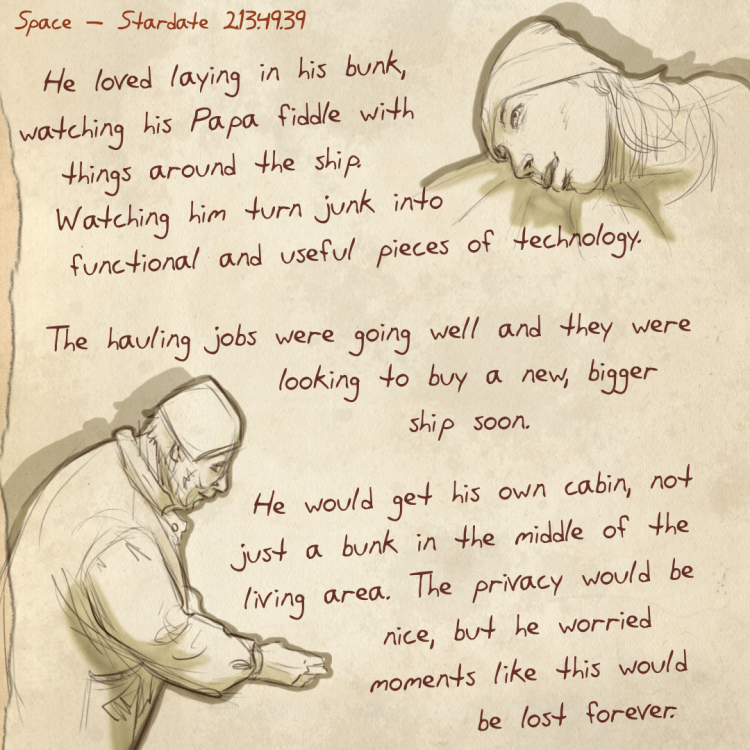 Space – Stardate 213.49.39
He loved laying in his bunk,
watching his Papa fiddle with
things around the ship.
Watching him turn junk into
functional and useful pieces of technology.
The hauling jobs were going well and they were
looking to buy a new, bigger
ship soon.
He would get his own cabin, not
just a bunk in the middle of the
living area. The privacy would be
nice, but he worried
moments like this would
be lost forever.